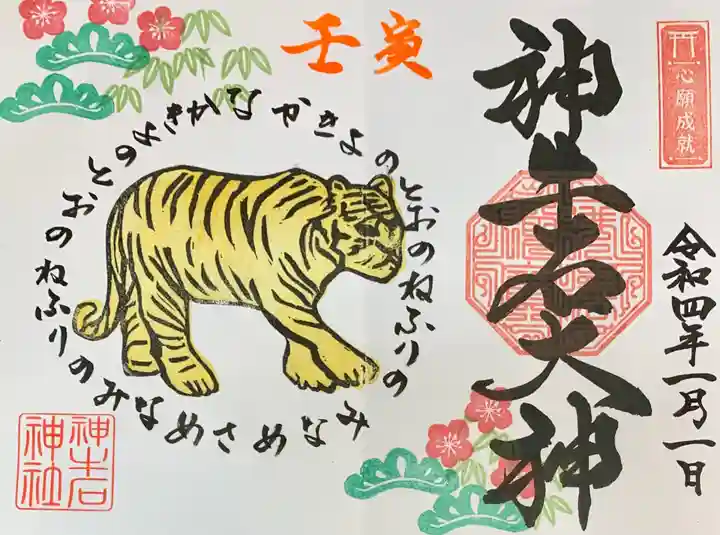 心願成就
神生石大神
令和四年一月一日
壬寅
なかきよのとおのねふりのみなめさめなみのりふねのおとのよきかな
神生石
神社